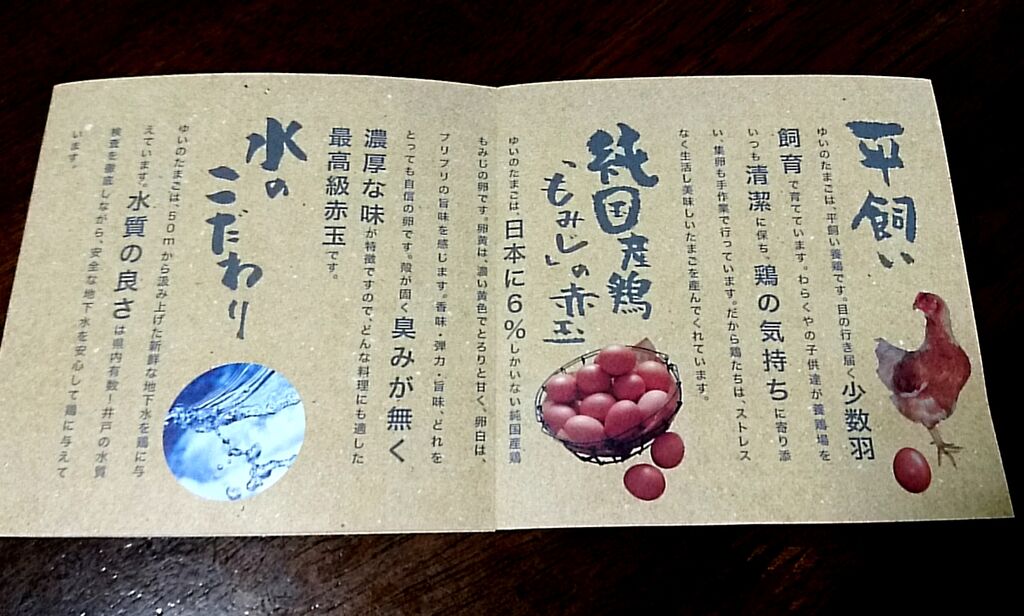 平飼い
ゆいのたまごは、平飼い養鶏です。目の行き届く少数羽
飼育で育てています。わらくやの子供達が養鶏場を
いつも清潔に保ち、鶏の気持ちに寄り添
い集卵も手作業で行っています。だから鶏たちは、ストレス
なく生活し美味しいたまごを産んでくれています。
純国産鶏
「もみじ」の赤玉
ゆいのたまごは、日本に6%しかいない純国産鶏
もみじの卵です。卵黄は、濃い黄色でとろりと甘く、卵白は、
プリプリの旨味を感じます。香味・弾力・旨味、どれを
とっても自信の卵です。殻が固く臭みが無く
濃厚な味が特徴ですので、どんな料理にも適した
最高級赤玉です。
水の
こだわり
ゆいのたまごは、50mから汲み上げた新鮮な地下水を鶏に与
えています。水質の良さは県内有数!井戸の水質
検査を徹底しながら、安全な地下水を安心して鶏に与えて
います。